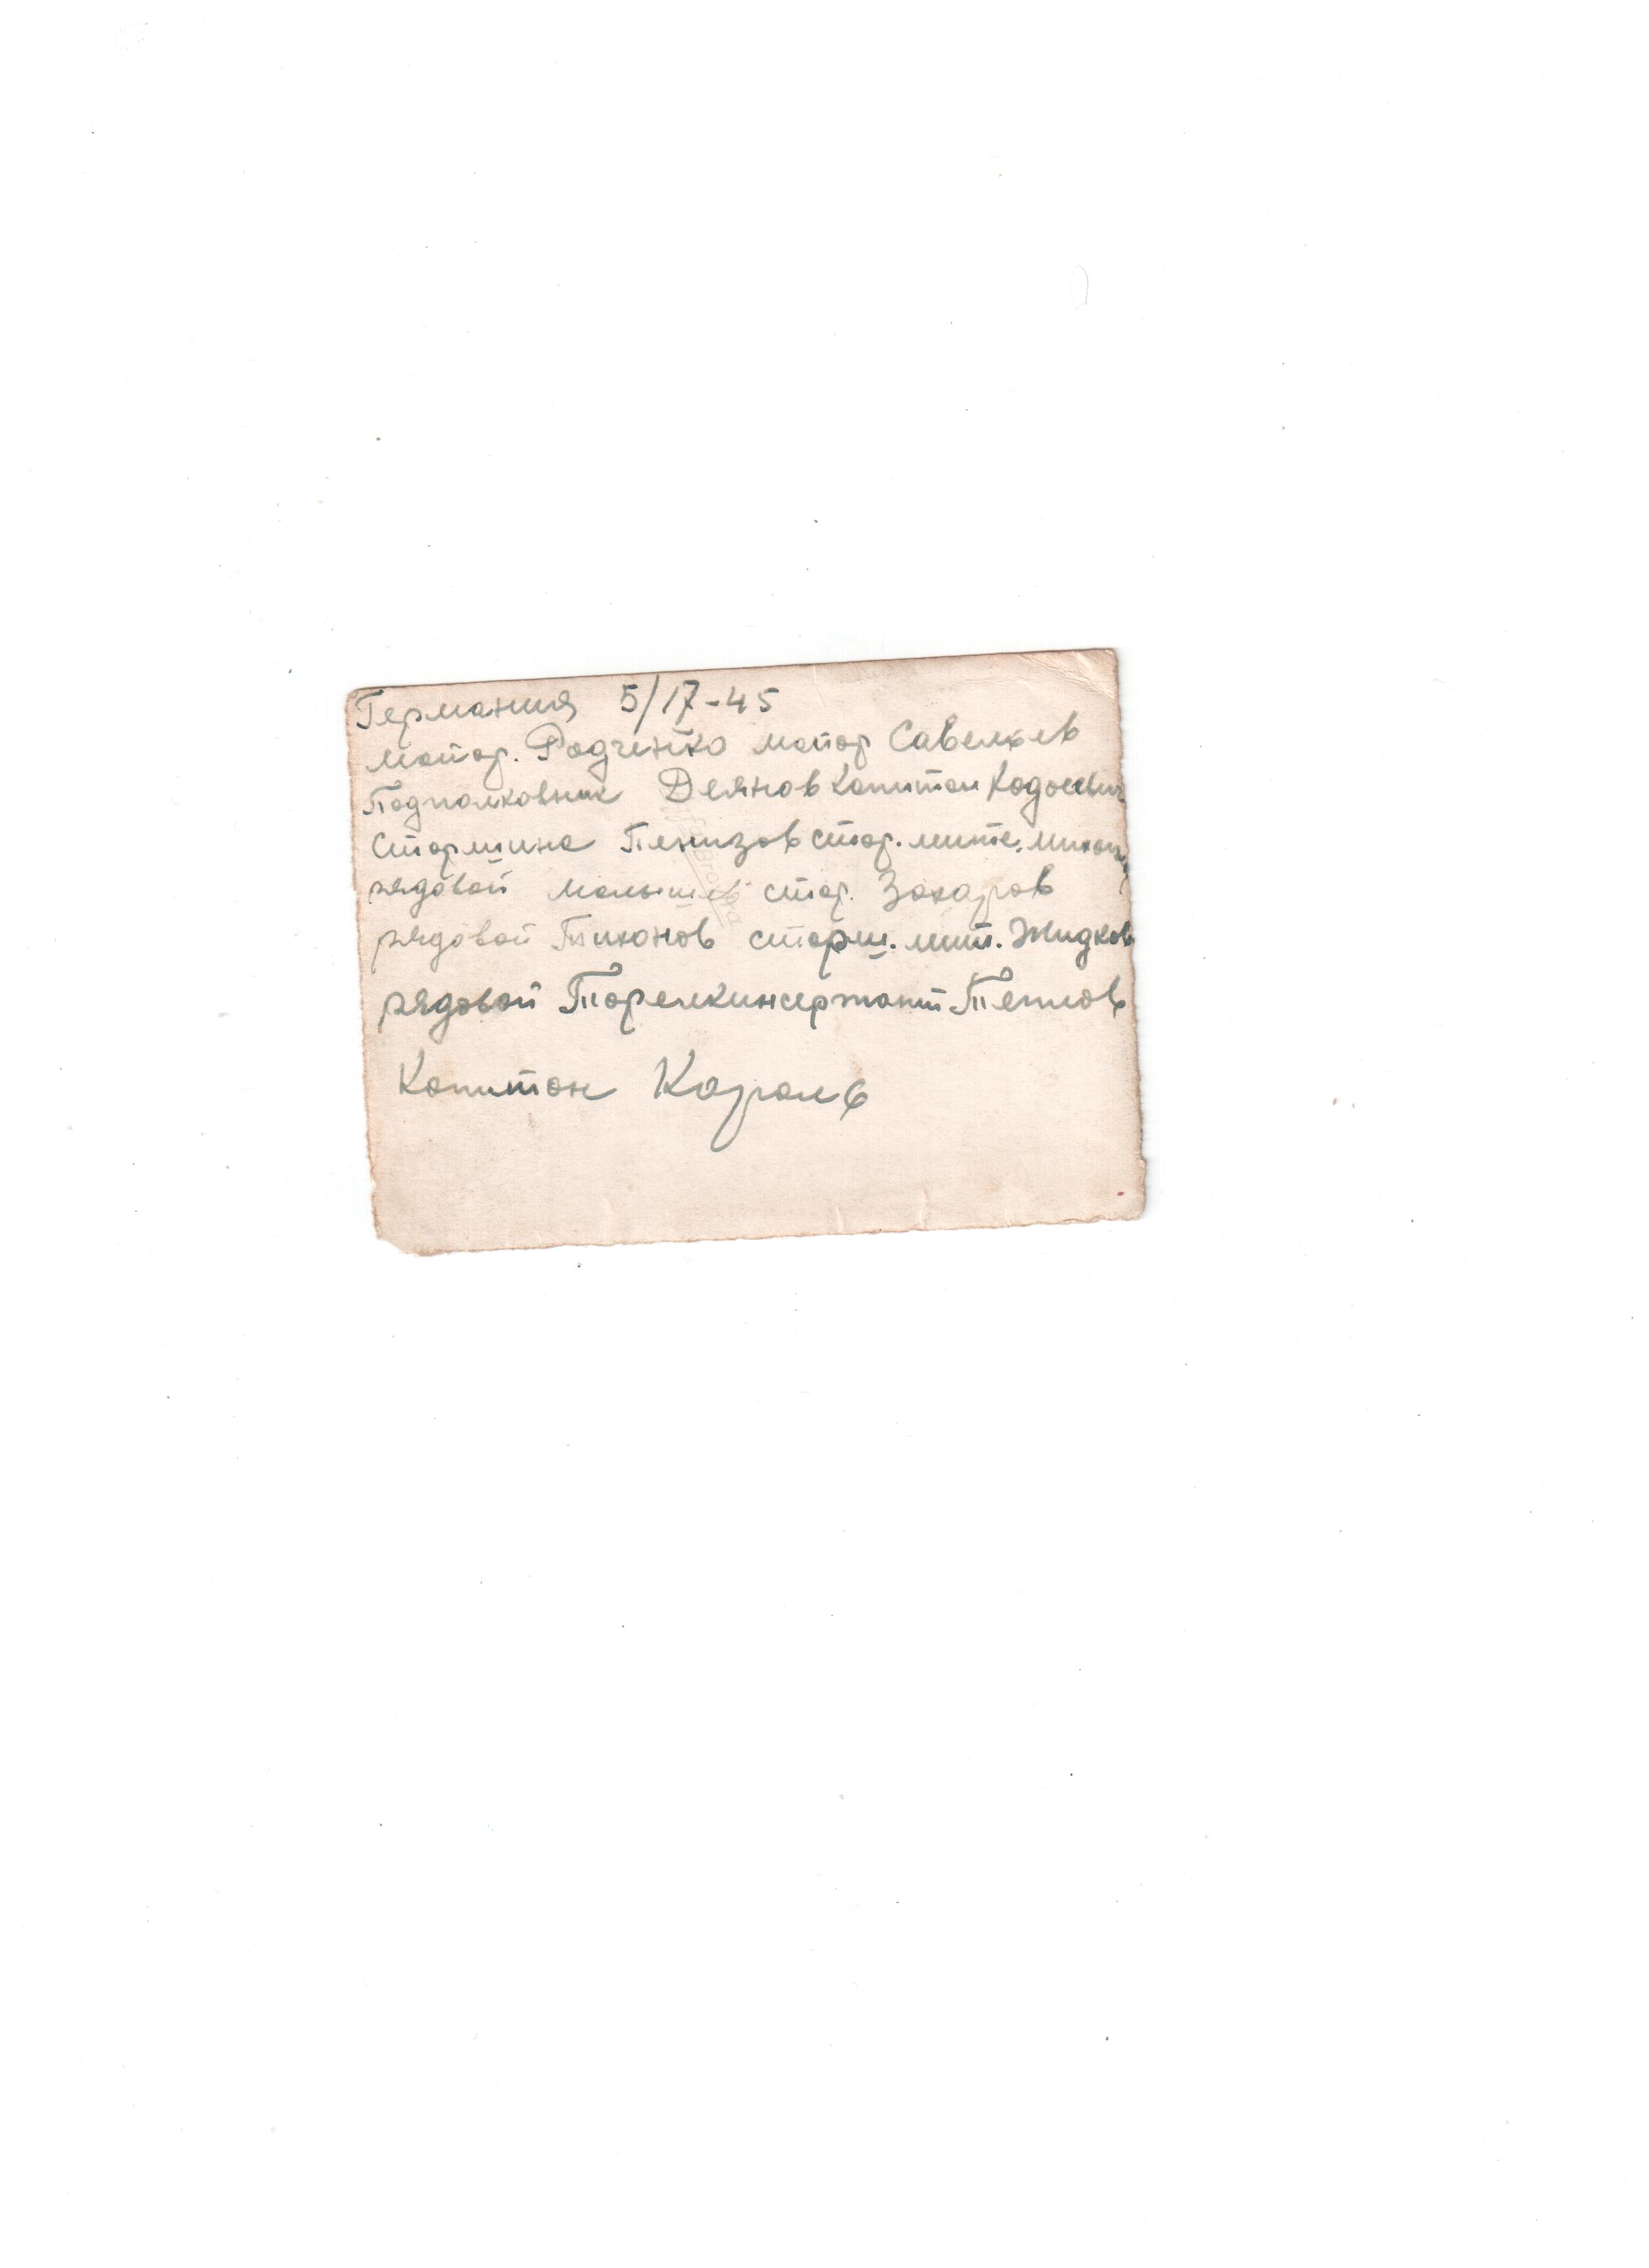 Германия 5/17-45
майор. Радченко майор Савельев
Подполковник Деянов Капитан
Старшина стар. лите.
рядовой Малышев стар. Захаров
рядовой Тихонов старш. лит. Жидков
рядовой Тарелкин сержант Теплов
Капитан Король